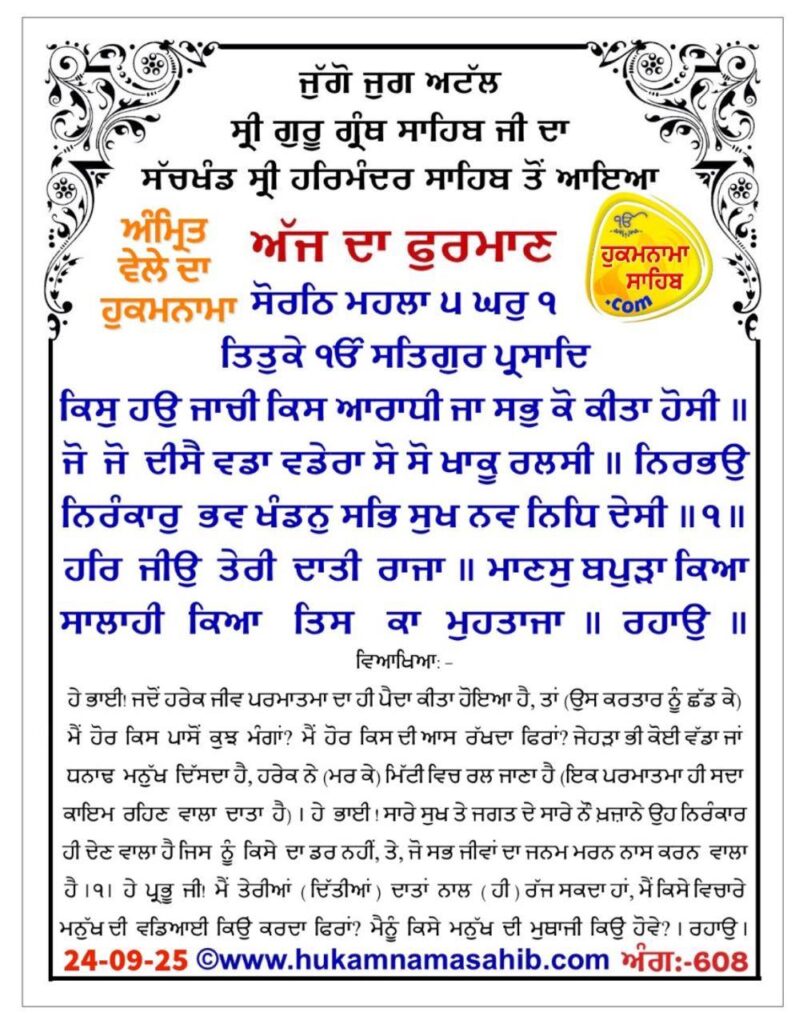 ਜੁੱਗੋ ਜੁਗ ਅਟੱਲ
ਸ੍ਰੀ ਗੁਰੂ ਗ੍ਰੰਥ ਸਾਹਿਬ ਜੀ ਦਾ
ਸੱਚਖੰਡ ਸ੍ਰੀ ਹਰਿਮੰਦਰ ਸਾਹਿਬ ਤੋਂ ਆਇਆ
ਅੰਮ੍ਰਿਤ
ਵੇਲੇ ਦਾ
ਹੁਕਮਨਾਮਾ
ਅੱਜ ਦਾ ਫੁਰਮਾਣ
ੴ
ਹੁਕਮਨਾਮਾ
ਸਾਹਿਬ
.com
ਸੋਰਠਿ ਮਹਲਾ ੫ ਘਰੁ ੧
ਤਿਤੁਕੇ ੴ ਸਤਿਗੁਰ ਪ੍ਰਸਾਦਿ
ਕਿਸੁ ਹਉ ਜਾਚੀ ਕਿਸ ਆਰਾਧੀ ਜਾ ਸਭੁ ਕੋ ਕੀਤਾ ਹੋਸੀ ॥
ਜੋ ਜੋ ਦੀਸੈ ਵਡਾ ਵਡੇਰਾ ਸੋ ਸੋ ਖਾਕੂ ਰਲਸੀ ॥ ਨਿਰਭਉ
ਨਿਰੰਕਾਰੁ ਭਵ ਖੰਡਨੁ ਸਭਿ ਸੁਖ ਨਵ ਨਿਧਿ ਦੇਸੀ ॥੧॥
ਹਰਿ ਜੀਉ ਤੇਰੀ ਦਾਤੀ ਰਾਜਾ ॥ ਮਾਣਸੁ ਬਪੁੜਾ ਕਿਆ
ਸਾਲਾਹੀ ਕਿਆ ਤਿਸ ਕਾ ਮੁਹਤਾਜਾ ॥ ਰਹਾਉ ॥
ਵਿਆਖਿਆ: –
ਹੇ ਭਾਈ! ਜਦੋਂ ਹਰੇਕ ਜੀਵ ਪਰਮਾਤਮਾ ਦਾ ਹੀ ਪੈਦਾ ਕੀਤਾ ਹੋਇਆ ਹੈ, ਤਾਂ (ਉਸ ਕਰਤਾਰ ਨੂੰ ਛੱਡ ਕੇ)
ਮੈਂ ਹੋਰ ਕਿਸ ਪਾਸੋਂ ਕੁਝ ਮੰਗਾਂ? ਮੈਂ ਹੋਰ ਕਿਸ ਦੀ ਆਸ ਰੱਖਦਾ ਫਿਰਾਂ? ਜੇਹੜਾ ਭੀ ਕੋਈ ਵੱਡਾ ਜਾਂ
ਧਨਾਢ ਮਨੁੱਖ ਦਿੱਸਦਾ ਹੈ, ਹਰੇਕ ਨੇ (ਮਰ ਕੇ) ਮਿੱਟੀ ਵਿਚ ਰਲ ਜਾਣਾ ਹੈ (ਇਕ ਪਰਮਾਤਮਾ ਹੀ ਸਦਾ
ਕਾਇਮ ਰਹਿਣ ਵਾਲਾ ਦਾਤਾ ਹੈ) । ਹੇ ਭਾਈ ! ਸਾਰੇ ਸੁਖ ਤੇ ਜਗਤ ਦੇ ਸਾਰੇ ਨੌ ਖ਼ਜ਼ਾਨੇ ਉਹ ਨਿਰੰਕਾਰ
ਹੀ ਦੇਣ ਵਾਲਾ ਹੈ ਜਿਸ ਨੂੰ ਕਿਸੇ ਦਾ ਡਰ ਨਹੀਂ, ਤੇ, ਜੋ ਸਭ ਜੀਵਾਂ ਦਾ ਜਨਮ ਮਰਨ ਨਾਸ ਕਰਨ ਵਾਲਾ
ਹੈ ।੧। ਹੇ ਪ੍ਰਭੂ ਜੀ! ਮੈਂ ਤੇਰੀਆਂ (ਦਿੱਤੀਆਂ ) ਦਾਤਾਂ ਨਾਲ ( ਹੀ ) ਰੱਜ ਸਕਦਾ ਹਾਂ, ਮੈਂ ਕਿਸੇ ਵਿਚਾਰੇ
ਮਨੁੱਖ ਦੀ ਵਡਿਆਈ ਕਿਉਂ ਕਰਦਾ ਫਿਰਾਂ? ਮੈਨੂੰ ਕਿਸੇ ਮਨੁੱਖ ਦੀ ਮੁਥਾਜੀ ਕਿਉਂ ਹੋਵੇ? । ਰਹਾਉ ।
24-09-25 ©www.hukamnamasahib.com ਅੰਗ:-608